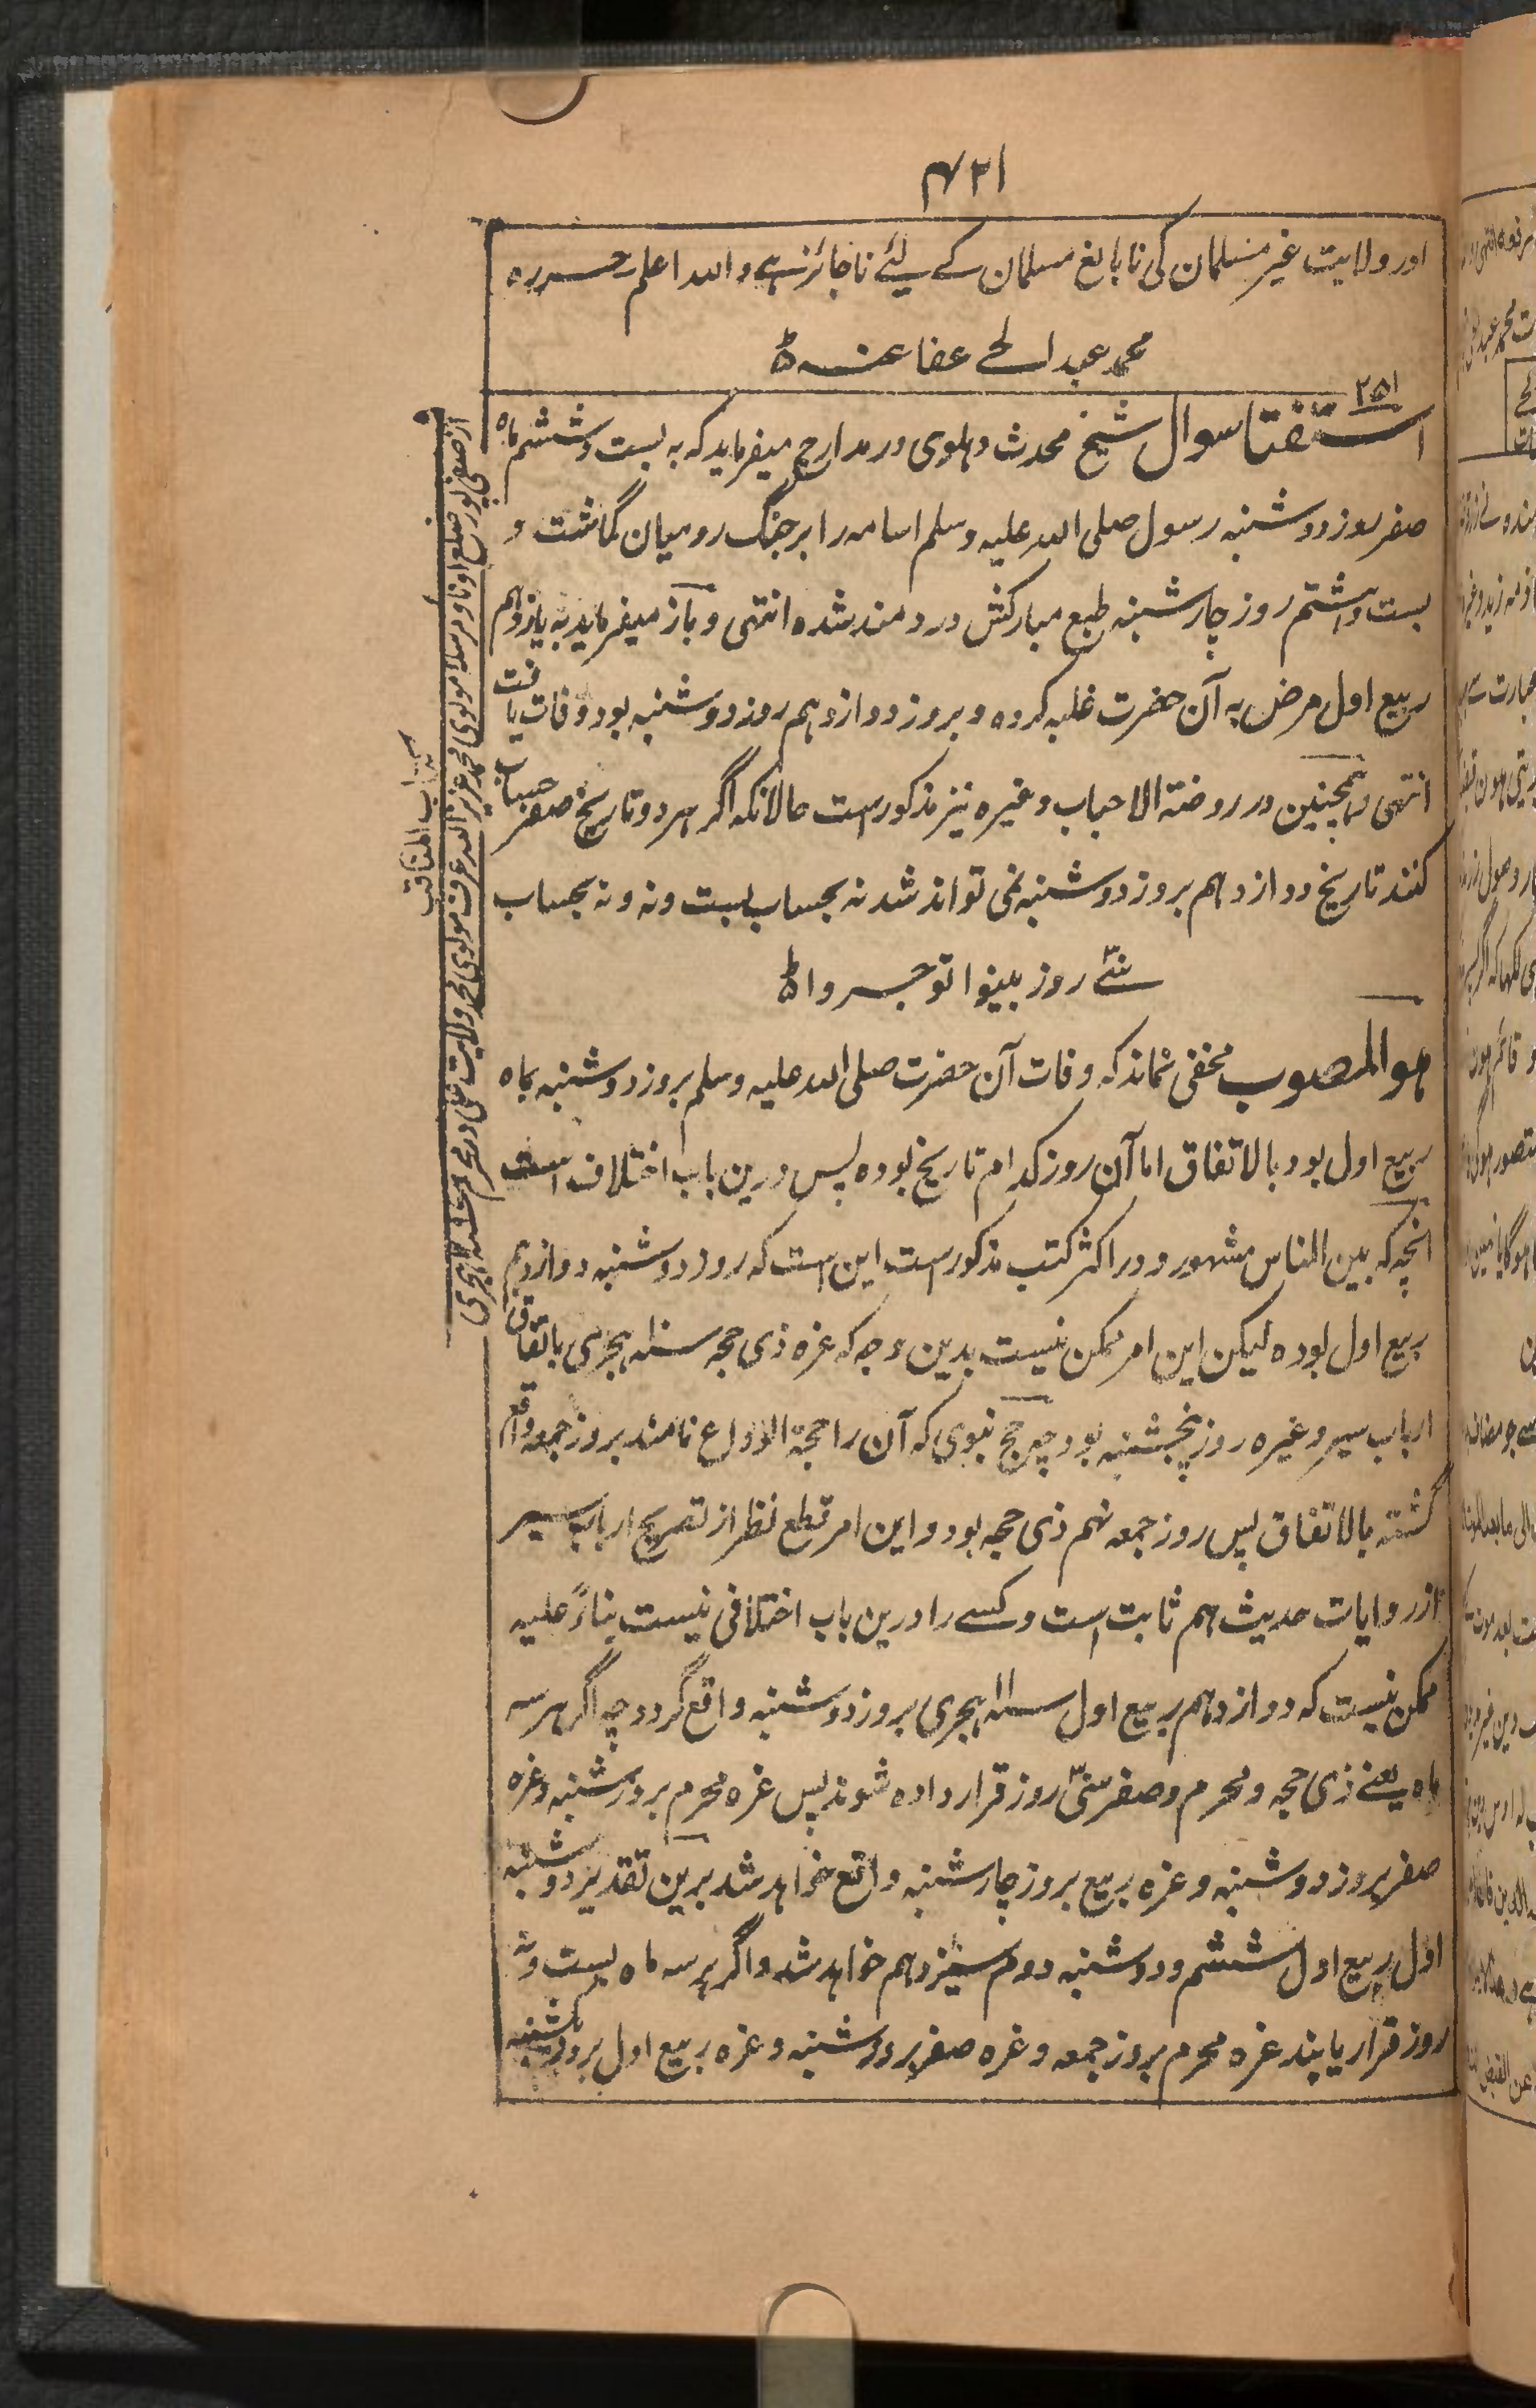 ۴۲۱
اور ولایت غیر مسلمان کی نابالغ مسلمان کے لیے ناجائز ہے واللہ اعلم حررہ
محمد عبد الحے عفا عنہ
۲۵۱
استفتا سوال شیخ محدث دہلوی در مدارج میفرماید کہ بہ بست و ششم ماہ
صفر روز دوشنبہ رسول صلی اللہ علیہ وسلم اسامہ را بر جنگ رومیان گماشت و
بست و ہشتم روز چارشنبہ طبع مبارکش دردمند شدہ انتہی و باز میفرماید بہ یازدہم
ربیع اول مرض بہ آن حضرت غلبہ کردہ و بروز دوازدہم روز دوشنبہ بود وفات یافت
انتہی و ہمچنین در روضۃ الاحباب وغیرہ نیز مذکورست حالانکہ اگر ہر دو تاریخ صفر حساب
کنند تاریخ دوازدہم بروز دوشنبہ نمی تواند شد نہ بحساب بست ونہ و نہ بحساب
سئے روز بینوا توجروا
ہو المصوب مخفی نماند کہ وفات آن حضرت صلی اللہ علیہ وسلم بروز دوشنبہ بماہ
ربیع اول بود بالاتفاق اما آن روز کدام تاریخ بودہ پس درین باب اختلاف است
انچہ کہ بین الناس مشہور و در اکثر کتب مذکورست این ست کہ روز دوشنبہ دوازدہم
ربیع اول بودہ لیکن این امر ممکن نیست بدین وجہ کہ غرہ ذی حجہ سنہ ۱۰ ہجری باتفاق
ارباب سیر وغیرہ روز پنجشنبہ بود چہ حج نبوی کہ آن را حجۃ الوداع نامند بروز جمعہ واقع
گشتہ بالاتفاق پس روز جمعہ نہم ذی حجہ بود و این امر قطع نظر از تصریح ارباب سیر
از روایات حدیث ہم ثابت است و کسے را درین باب اختلافی نیست بناءً علیہ
ممکن نیست کہ دوازدہم ربیع اول سنہ ۱۱ ہجری بروز دوشنبہ واقع گردد چہ اگر ہر سہ
ماہ یعنے ذی حجہ و محرم و صفر سئے روز قرار دادہ شوند پس غرہ محرم بروز شنبہ و غرہ
صفر بروز دوشنبہ و غرہ ربیع بروز چارشنبہ واقع خواہد شد برین تقدیر دوشنبہ
اول ربیع اول ششم و دوشنبہ دوم سیزدہم خواہد شد و اگر ہر سہ ماہ بست ونہ
روز قرار یابند غرہ محرم بروز جمعہ و غرہ صفر بروز شنبہ و غرہ ربیع اول بروز یکشنبہ
از صفی پور ضلع اوناو مرسلہ مولوی محمد عزیز اللہ عرف مولوی محمد ولایت علی در محرم ہجری
کتاب المناقب